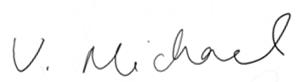 V. Michael